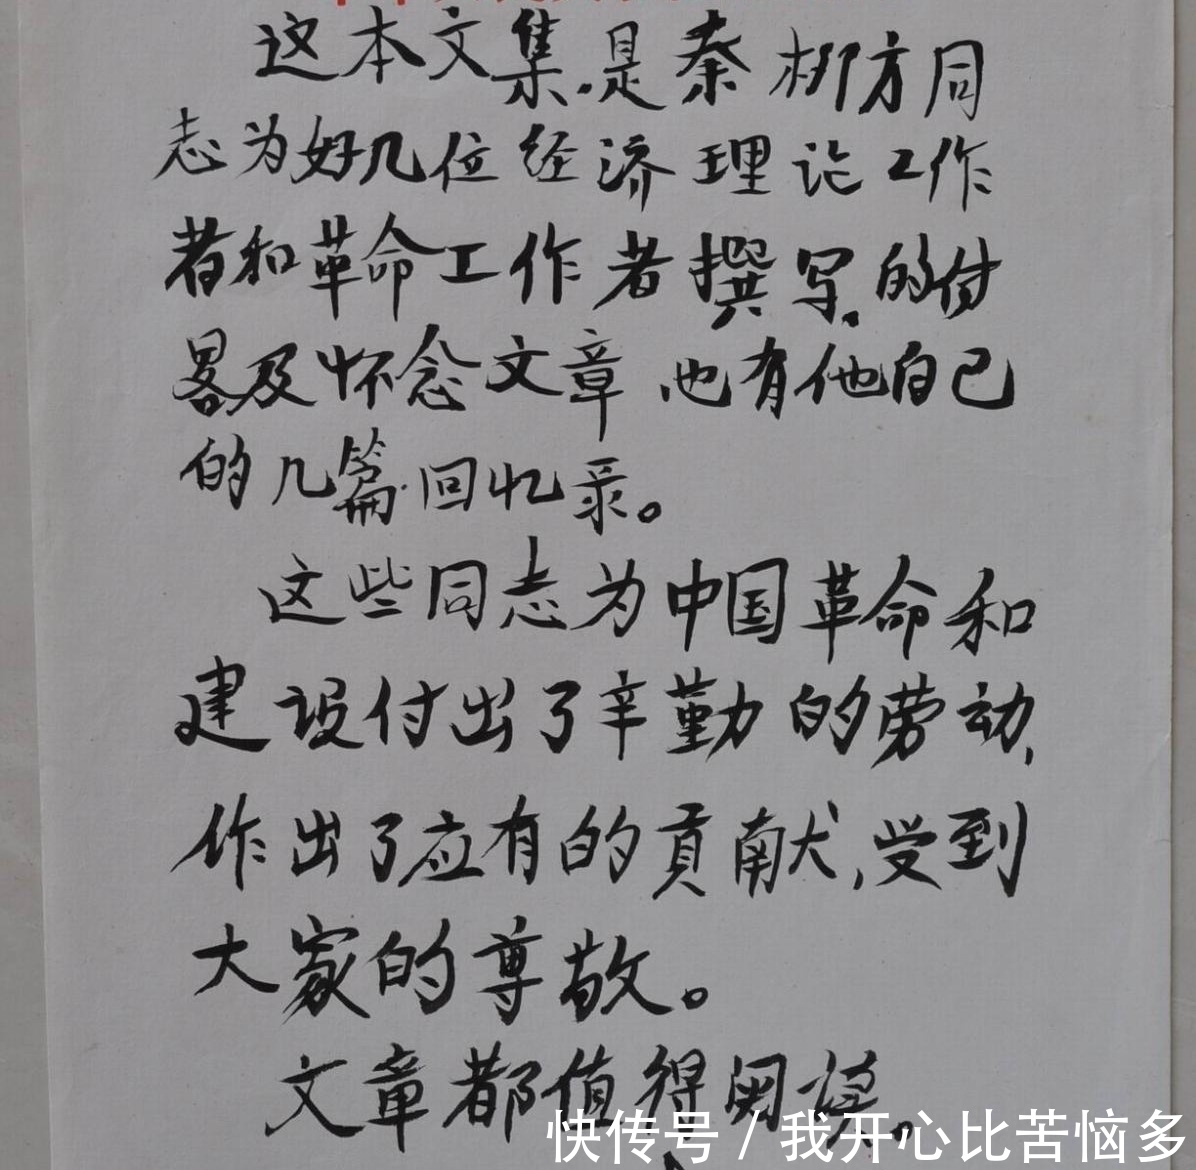 这本文集.是秦柳方同
志为好几位经济理论工作
者和革命工作者撰写.的传
略及怀念文章.也有他自己
的几篇.回忆录。
这些同志为中国革命和
建设付出了辛勤的劳动,
作出了应有的贡献,受到
大家的尊敬。
文章都值得阅读。
快传号/我开心比苦恼多